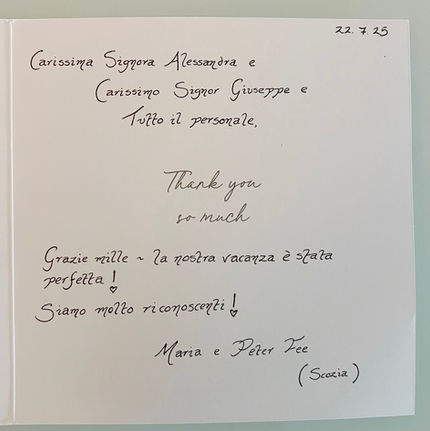 22.7.25
Carissima Signora Alessandra e
Carissimo Signor Giuseppe e
Tutto il personale,
Thank you
so much
Grazie mille ~ la nostra vacanza è stata
perfetta!
Siamo molto riconoscenti!
Maria e Peter Fee
(Scozia)